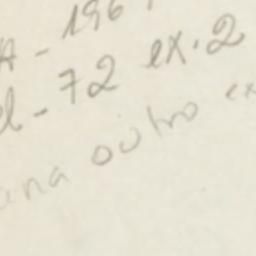 A - 196
d - 72 ex. 2
ana outro ex